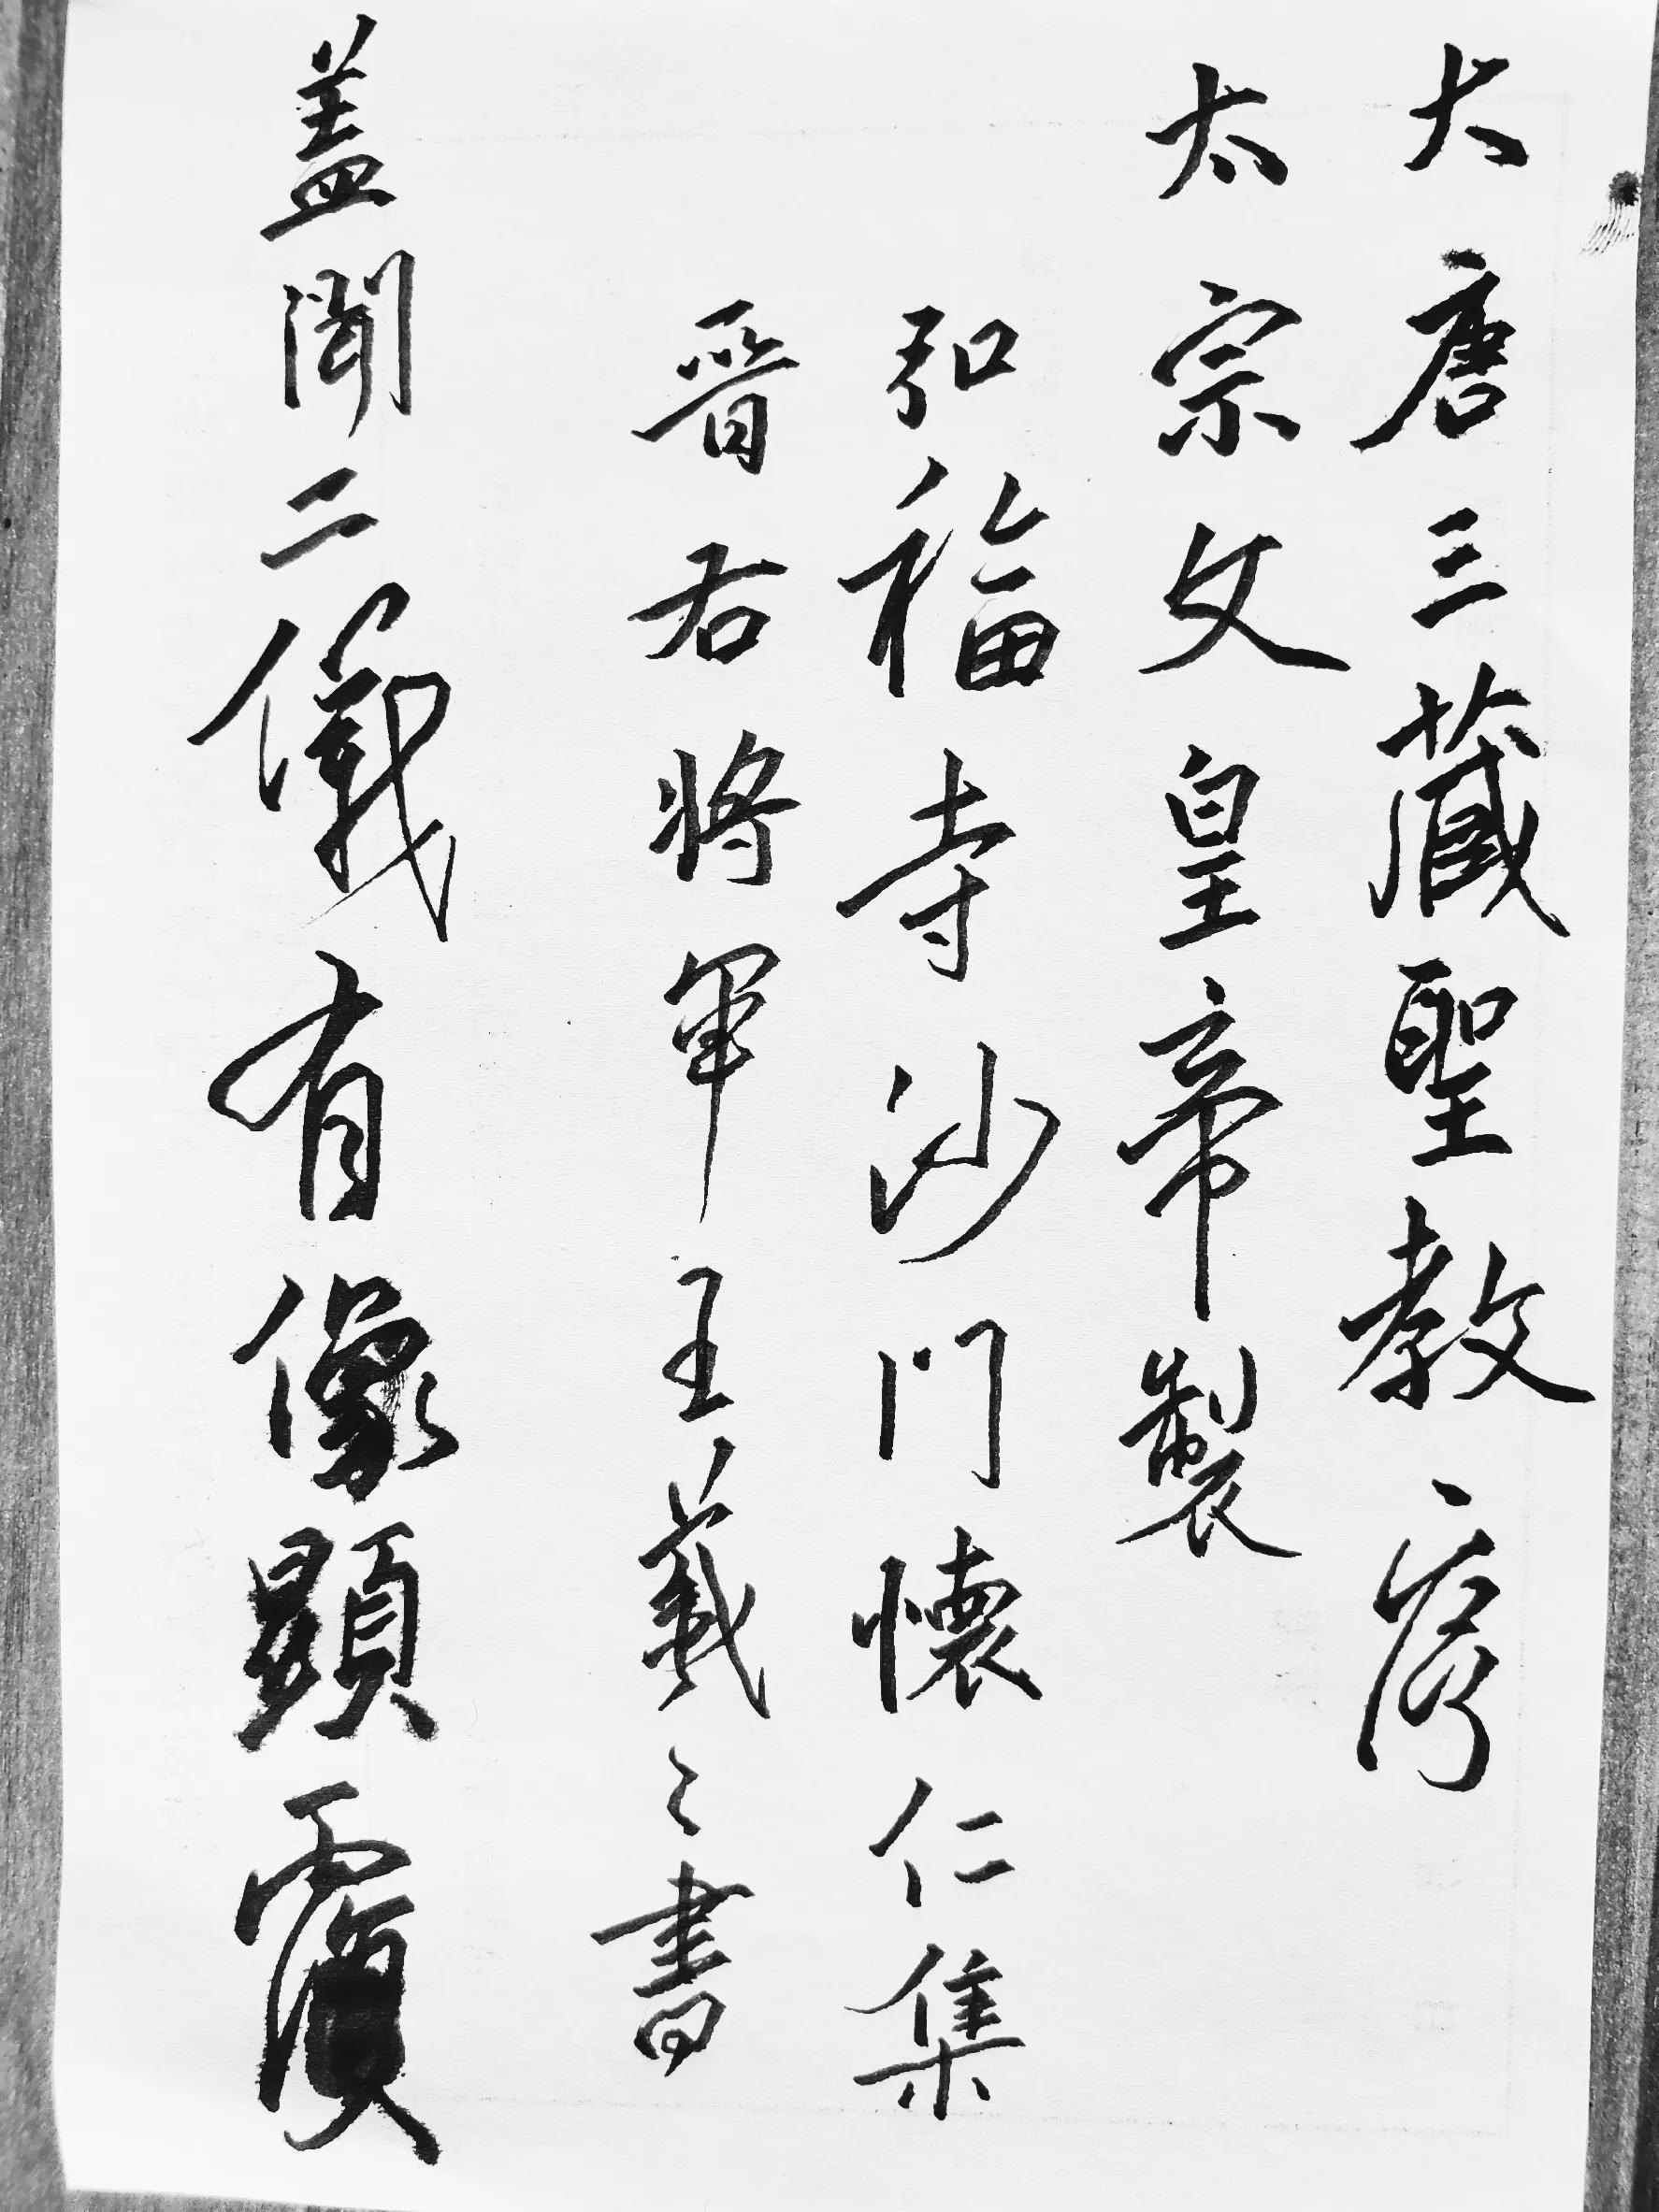 大唐三藏聖教序
太宗文皇帝製
弘福寺沙門懷仁集
晉右將軍王羲之書
蓋聞二儀有像顯覆